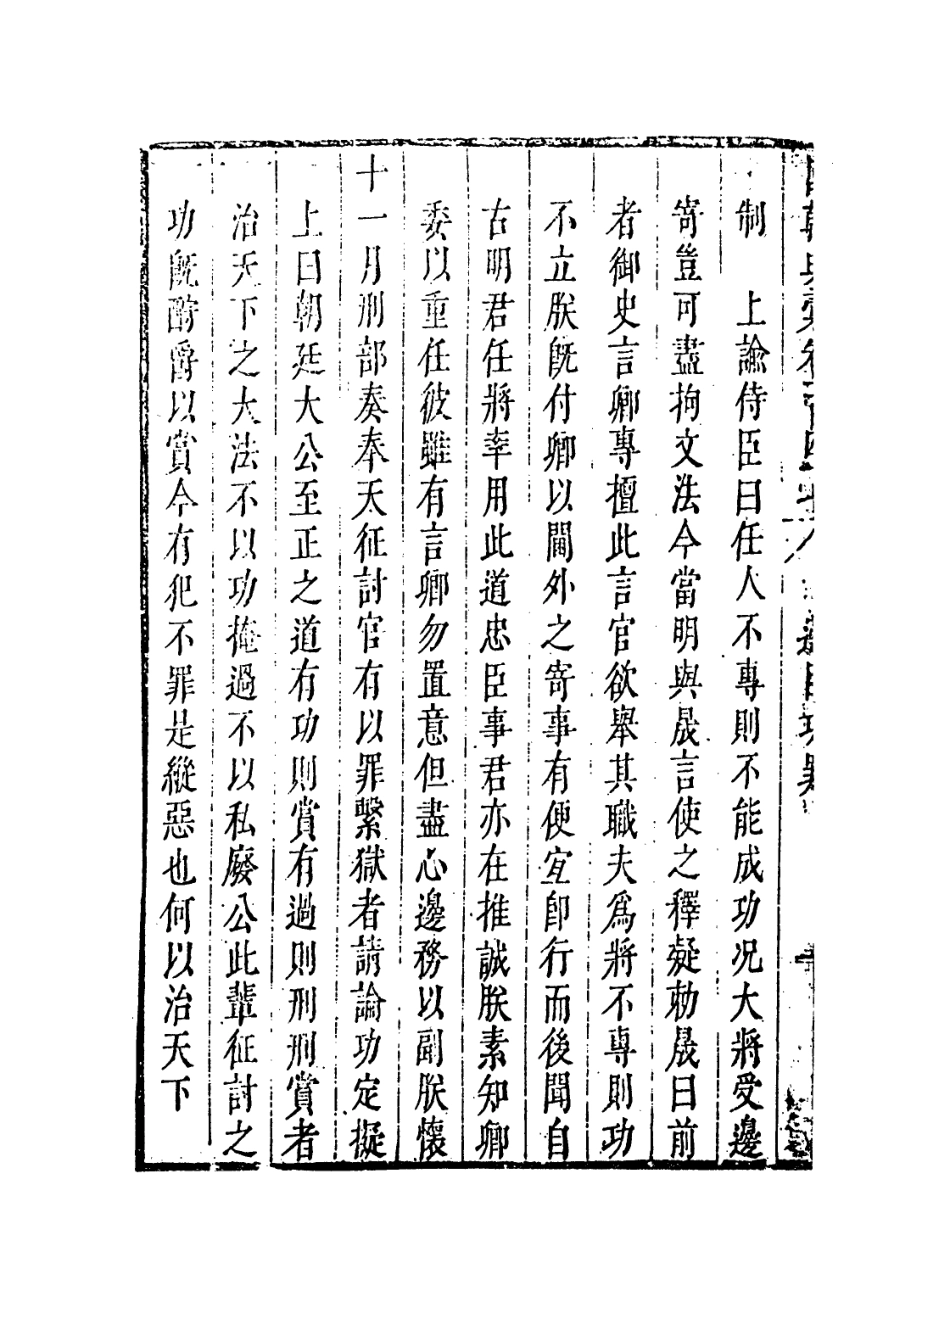 制　上諭侍臣曰任人不專則不能成功况大將受邊
寄豈可盡拘文法今當明與晟言使之釋疑勅晟曰前
者御史言卿專擅此言官欲舉其職夫爲將不專則功
不立朕旣付卿以閫外之寄事有便宜卽行而後聞自
古明君任將率用此道忠臣事君亦在推誠朕素知卿
委以重任彼雖有言卿勿置意但盡心邊務以副朕懷
十一月刑部奏奉天征討官有以罪繫獄者請論功定擬
上曰朝廷大公至正之道有功則賞有過則刑刑賞者
治天下之大法不以功掩過不以私廢公此輩征討之
功旣酧爵以賞今有犯不罪是縱惡也何以治天下